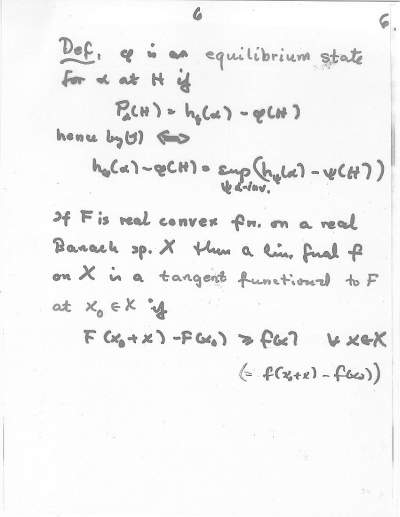 6
6.
Def. φ is an equilibrium state
for α at H if
Pα(H) = hφ(α) - φ(H)
hence by ⟺
hφ(α) - φ(H) = sup (hψ(α) - ψ(H))
ψ α-inv.
If F is real convex fn. on a real
Banach sp. X then a lin. fnal f
on X is a tangent functional to F
at x₀ ∈ X if
F(x₀+x) - F(x₀) ≥ f(x) ∀ x∈X
(= f(x₀+x) - f(x₀))